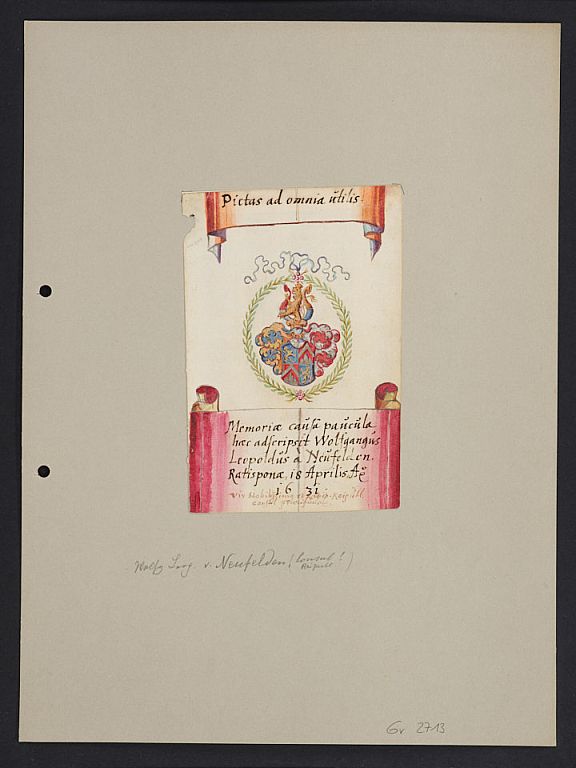 Pietas ad omnia ûtilis.
Memoriæ caûsa paûcula
hæc adscripsit Wolfgangus
Leopoldûs à Neûfelden.
Ratisponæ, 18 Aprilis. Aõ
1631.
Vir Nobilissimus
v. Neufelden (Consul!
Gv 2713